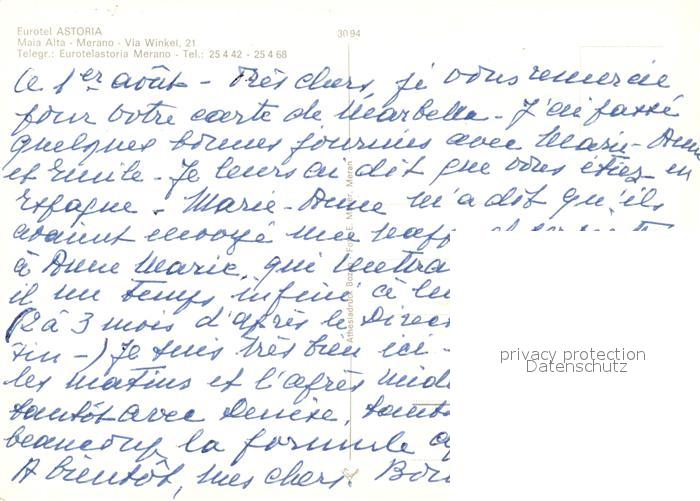 Eurotel ASTORIA
Maia Alta - Merano - Via Winkel, 21
Telegr.: Eurotelastoria Merano - Tel.: 25 4 42 - 25 4 68
3094
Ce 1er août - Très chers, je vous remercie
pour votre carte de Marbella - J'ai passé
quelques bonnes journées avec Marie-Anne
et Emile - Je leurs ai dit que vous étiez en
Espagne. Marie-Anne m'a dit qu'ils
avaient envoyé une
à Anne Marie, qui mettra
il un temps infini à
(2 à 3 mois d'après le Direc
Fin -) Je suis très bien ici -
les matins et l'après midi
tantôt avec Denise, tantô
beaucoup la formule
A bientôt, mes chers. Bon
privacy protection
Datenschutz